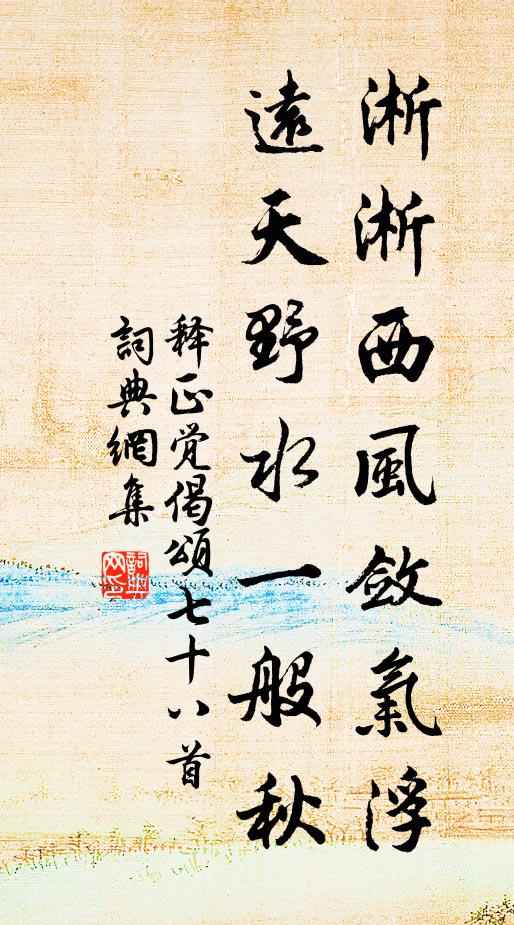 淅淅西風斂氣浮
遠天野水一般秋
释正觉偈頌七十八首
詞典網集